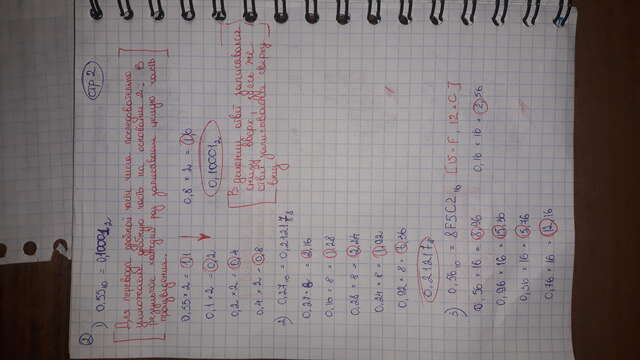 2
стр 2
1) 0,55₁₀ = 0,10001₂
Для перевода дробной части числа последовательно
умножаем дробную часть на основание 2. В
результате каждый раз записываем целую часть
произведения.
0,55 × 2 = 1,1
0,8 × 2 = 1,6
0,1 × 2 = 0,2
0,10001₂
0,2 × 2 = 0,4
0,4 × 2 = 0,8
В делении ответ записывался
снизу вверх, здесь же
ответ записывается сверху
вниз
2) 0,27₁₀ = 0,21217₈
0,27 × 8 = 2,16
0,16 × 8 = 1,28
0,28 × 8 = 2,24
0,24 × 8 = 1,92
0,92 × 8 = 7,36
0,21217₈
3) 0,56₁₀ = 8F5C2₁₆ [15 = F, 12 = C]
0,56 × 16 = 8,96
0,16 × 16 = 2,56
0,96 × 16 = 15,36
0,36 × 16 = 5,76
0,76 × 16 = 12,16